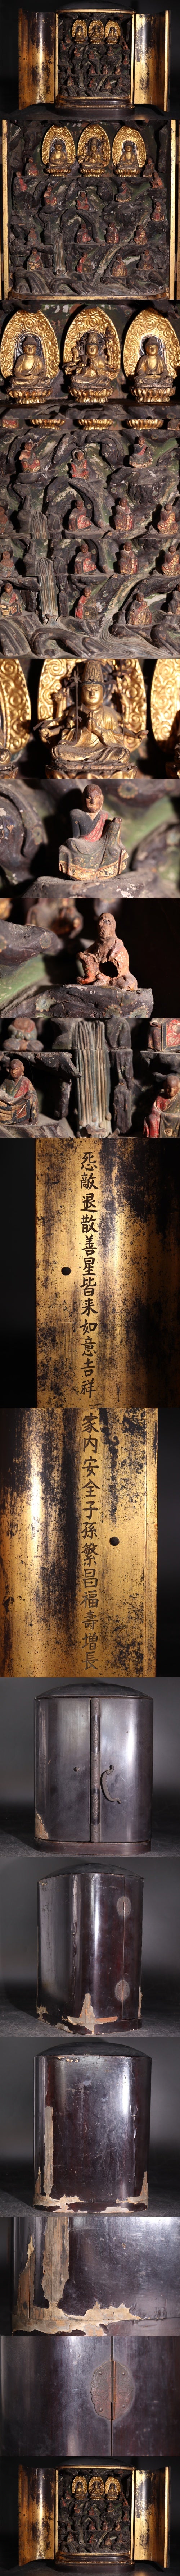 怨敵退散善星皆来如意吉祥
家内安全子孫繁昌福壽增長